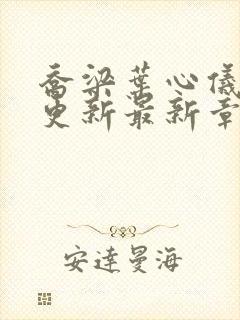 喬梁葉心儀
更新最新章
安達曼海